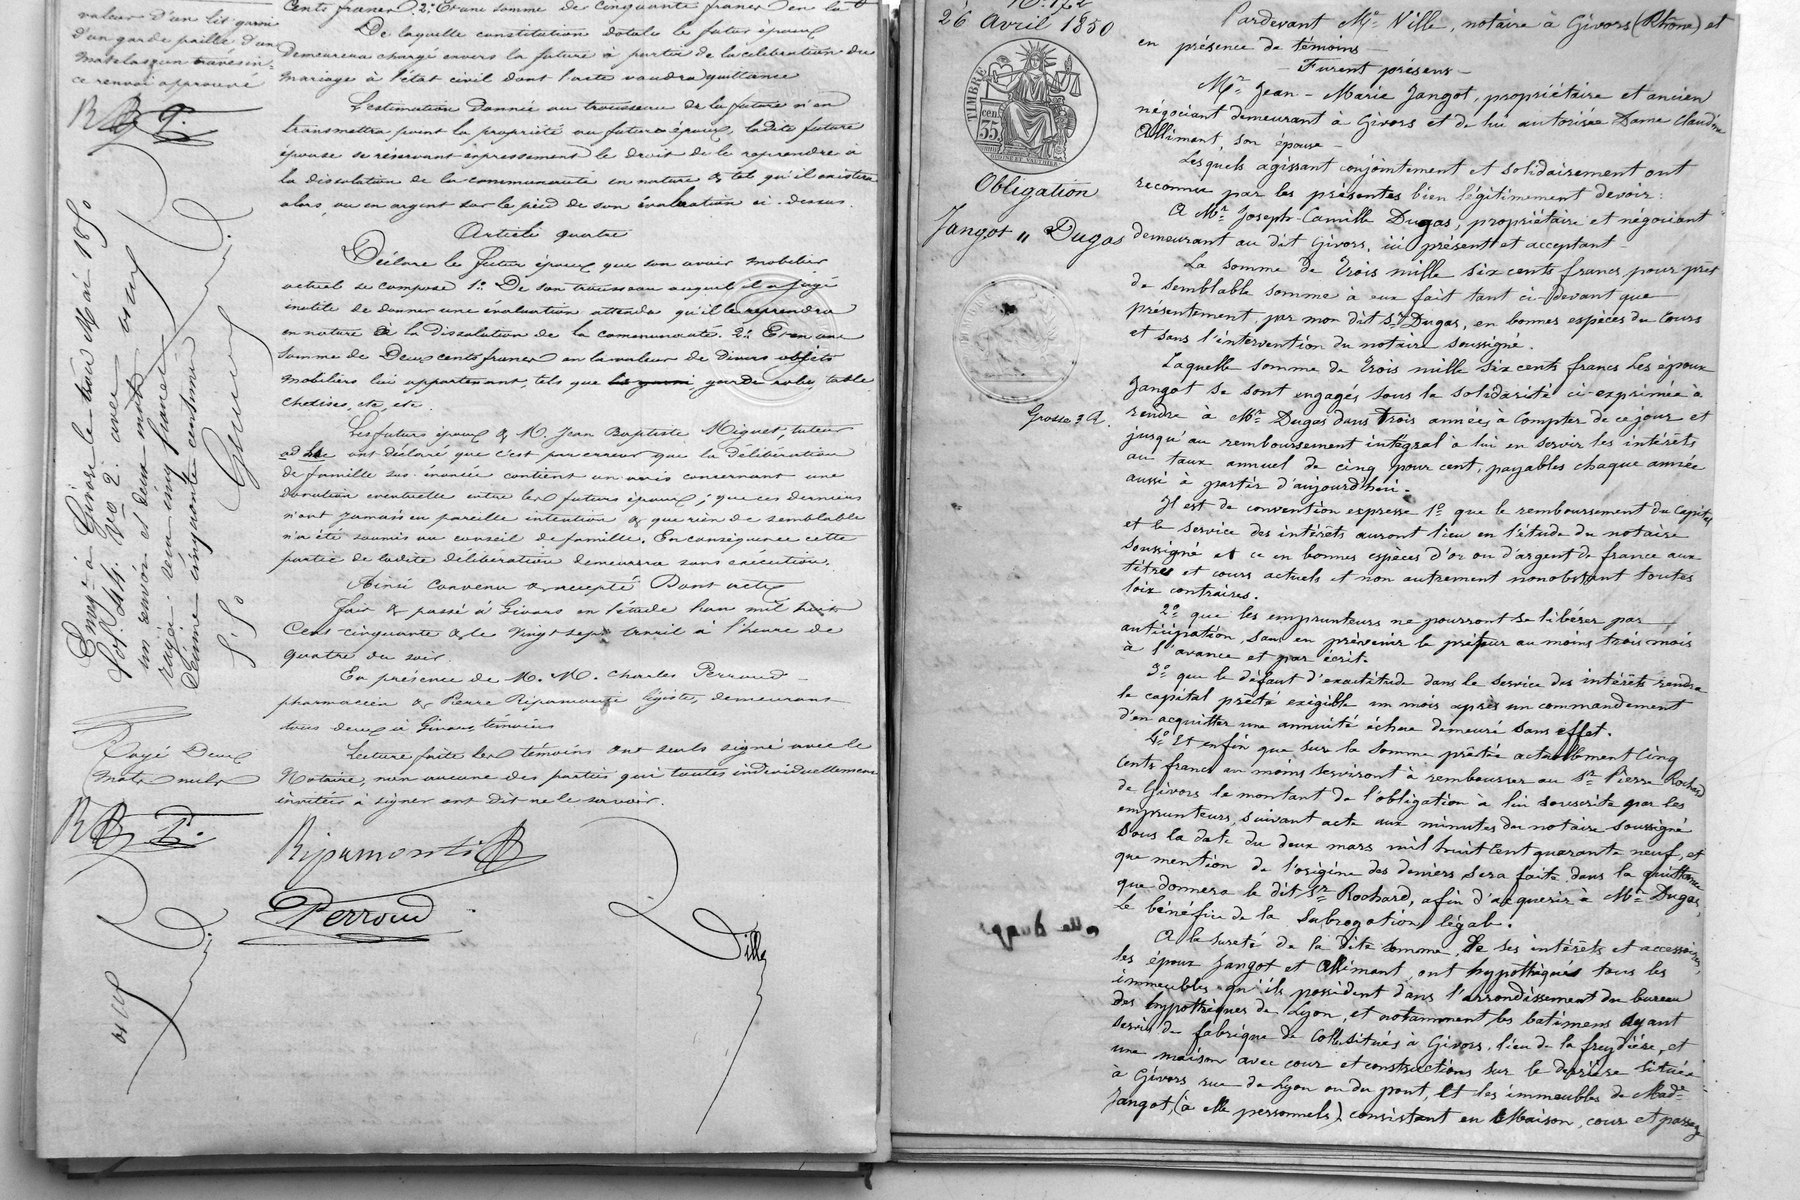 valeur d'un lit garni
d'un garde paille d'un
matelas, un traversin,
ce renvoi approuvé
cents francs. 2º Et une somme de cinquante francs en la
De laquelle constitution dotale le futur époux
demeurera chargé envers la future à partir de la célébration du
mariage à l'état civil dont l'acte vaudra quittance
L'estimation donnée au trousseau de la future n'en
transmettra point la propriété au futur époux, ladite future
épouse se réservant expressément le droit de le reprendre à
la dissolution de la communauté en nature & tel qu'il existera
alors, ou en argent sur le pied de son évaluation ci-dessus.
Article quatre
Déclare le futur époux que son avoir mobilier
actuel se compose 1º De son trousseau auquel il a jugé
inutile de donner une évaluation attendu qu'il le reprendra
en nature à la dissolution de la communauté. 2º Et en une
somme de Deux cents francs en la valeur de divers objets
mobiliers lui appartenant, tels que garde robe, table
chaises, etc, etc.
Les futurs époux & M. Jean Baptiste Miguet, tuteur
ad hoc ont déclaré que c'est par erreur que la délibération
de famille sus-énoncée contient un avis concernant une
donation éventuelle entre les futurs époux; que ces derniers
n'ont jamais eu pareille intention & que rien de semblable
n'a été soumis au conseil de famille. En conséquence cette
partie de ladite délibération demeurera sans exécution.
Ainsi convenu & accepté Dont acte
Fait & passé à Givors en l'étude l'an mil huit
cent cinquante & le vingt sept avril à l'heure de
quatre du soir.
En présence de M. M. Charles Perroud
pharmacien & Pierre Ripamonti légiste, demeurant
tous deux à Givors, témoins
Lecture faite les témoins ont seuls signé avec le
Notaire, non aucune des parties qui toutes individuellement
invitées à signer ont dit ne le savoir.
Rayé Deux
mots nuls
Ripamonti
Perroud
Ville
Enrg. à Givors le trois Mai 1850
fol. 44. Vº 2. avec
un renvoi et deux mots
rayés. reçu cinq francs
Dixme cinquante centimes
5.50
Nº 172
26 Avril 1850
TIMBRE
35 cen.
Obligation
Jangot " Dugas
Grosse A.
Pardevant Me. Ville, notaire à Givors (Rhône) et
en présence de témoins
Furent présens
Mr. Jean-Marie Jangot, propriétaire et ancien
négociant demeurant à Givors et de lui autorisée Dame Claudine
Allimant, son épouse
Lesquels agissant conjointement et solidairement ont
reconnu par les présentes bien légitimement devoir:
A Mr. Joseph-Camille Dugas, propriétaire et négociant
demeurant au dit Givors, ici présent et acceptant
La somme de Trois mille six cents francs, pour prêt
de semblable somme à eux fait tant ci-devant que
présentement par mon dit Sr. Dugas, en bonnes espèces du cours
et sans l'intervention du notaire soussigné.
Laquelle somme de Trois mille six cents francs les époux
Jangot se sont engagés sous la solidarité ci-exprimée à
rendre à Mr. Dugas dans Trois années à compter de ce jour et
jusqu'au remboursement intégral à lui en servir les intérêts
au taux annuel de cinq pour cent, payables chaque année
aussi à partir d'aujourd'hui.
Il est de convention expresse 1º que le remboursement du Capital
et le service des intérêts auront lieu en l'étude du notaire
soussigné et ce en bonnes espèces d'or ou d'argent de france aux
titres et cours actuels et non autrement nonobstant toutes
loix contraires.
2º que les emprunteurs ne pourront se libérer par
anticipation, sans en prévenir le prêteur au moins trois mois
à l'avance et par écrit.
3º que le défaut d'exactitude dans le service des intérêts rendra
le capital prêté exigible un mois après un commandement
d'en acquitter une annuité échue demeuré sans effet.
4º Et enfin que sur la somme prêtée actuellement cinq
cents francs au moins serviront à rembourser au Sr. Pierre Rochard
de Givors le montant de l'obligation à lui souscrite par les
emprunteurs, suivant acte aux minutes du notaire soussigné
sous la date du deux mars mil huit cent quarante neuf, et
que mention de l'origine des deniers sera faite dans la quittance
que donnera le dit Sr. Rochard, afin d'acquérir à Mr. Dugas,
le bénéfice de la subrogation légale.
A la sureté de la dite somme, de ses intérêts et accessoires,
les époux Jangot et Allimant, ont hypothéqué tous les
immeubles qu'ils possèdent dans l'arrondissement du bureau
des hypothèques de Lyon, et notamment les batimens ayant
servi de fabrique de Colle situés à Givors, lieu de la freydière, et
une maison avec cour et constructions sur le derrière située
à Givors, rue de Lyon ou du pont, Et les immeubles de Made.
Jangot, (à elle personnels) consistant en Maison, cour et passage